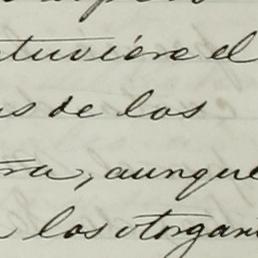 tuviére el
as de los
tra, aunque
los otorgan